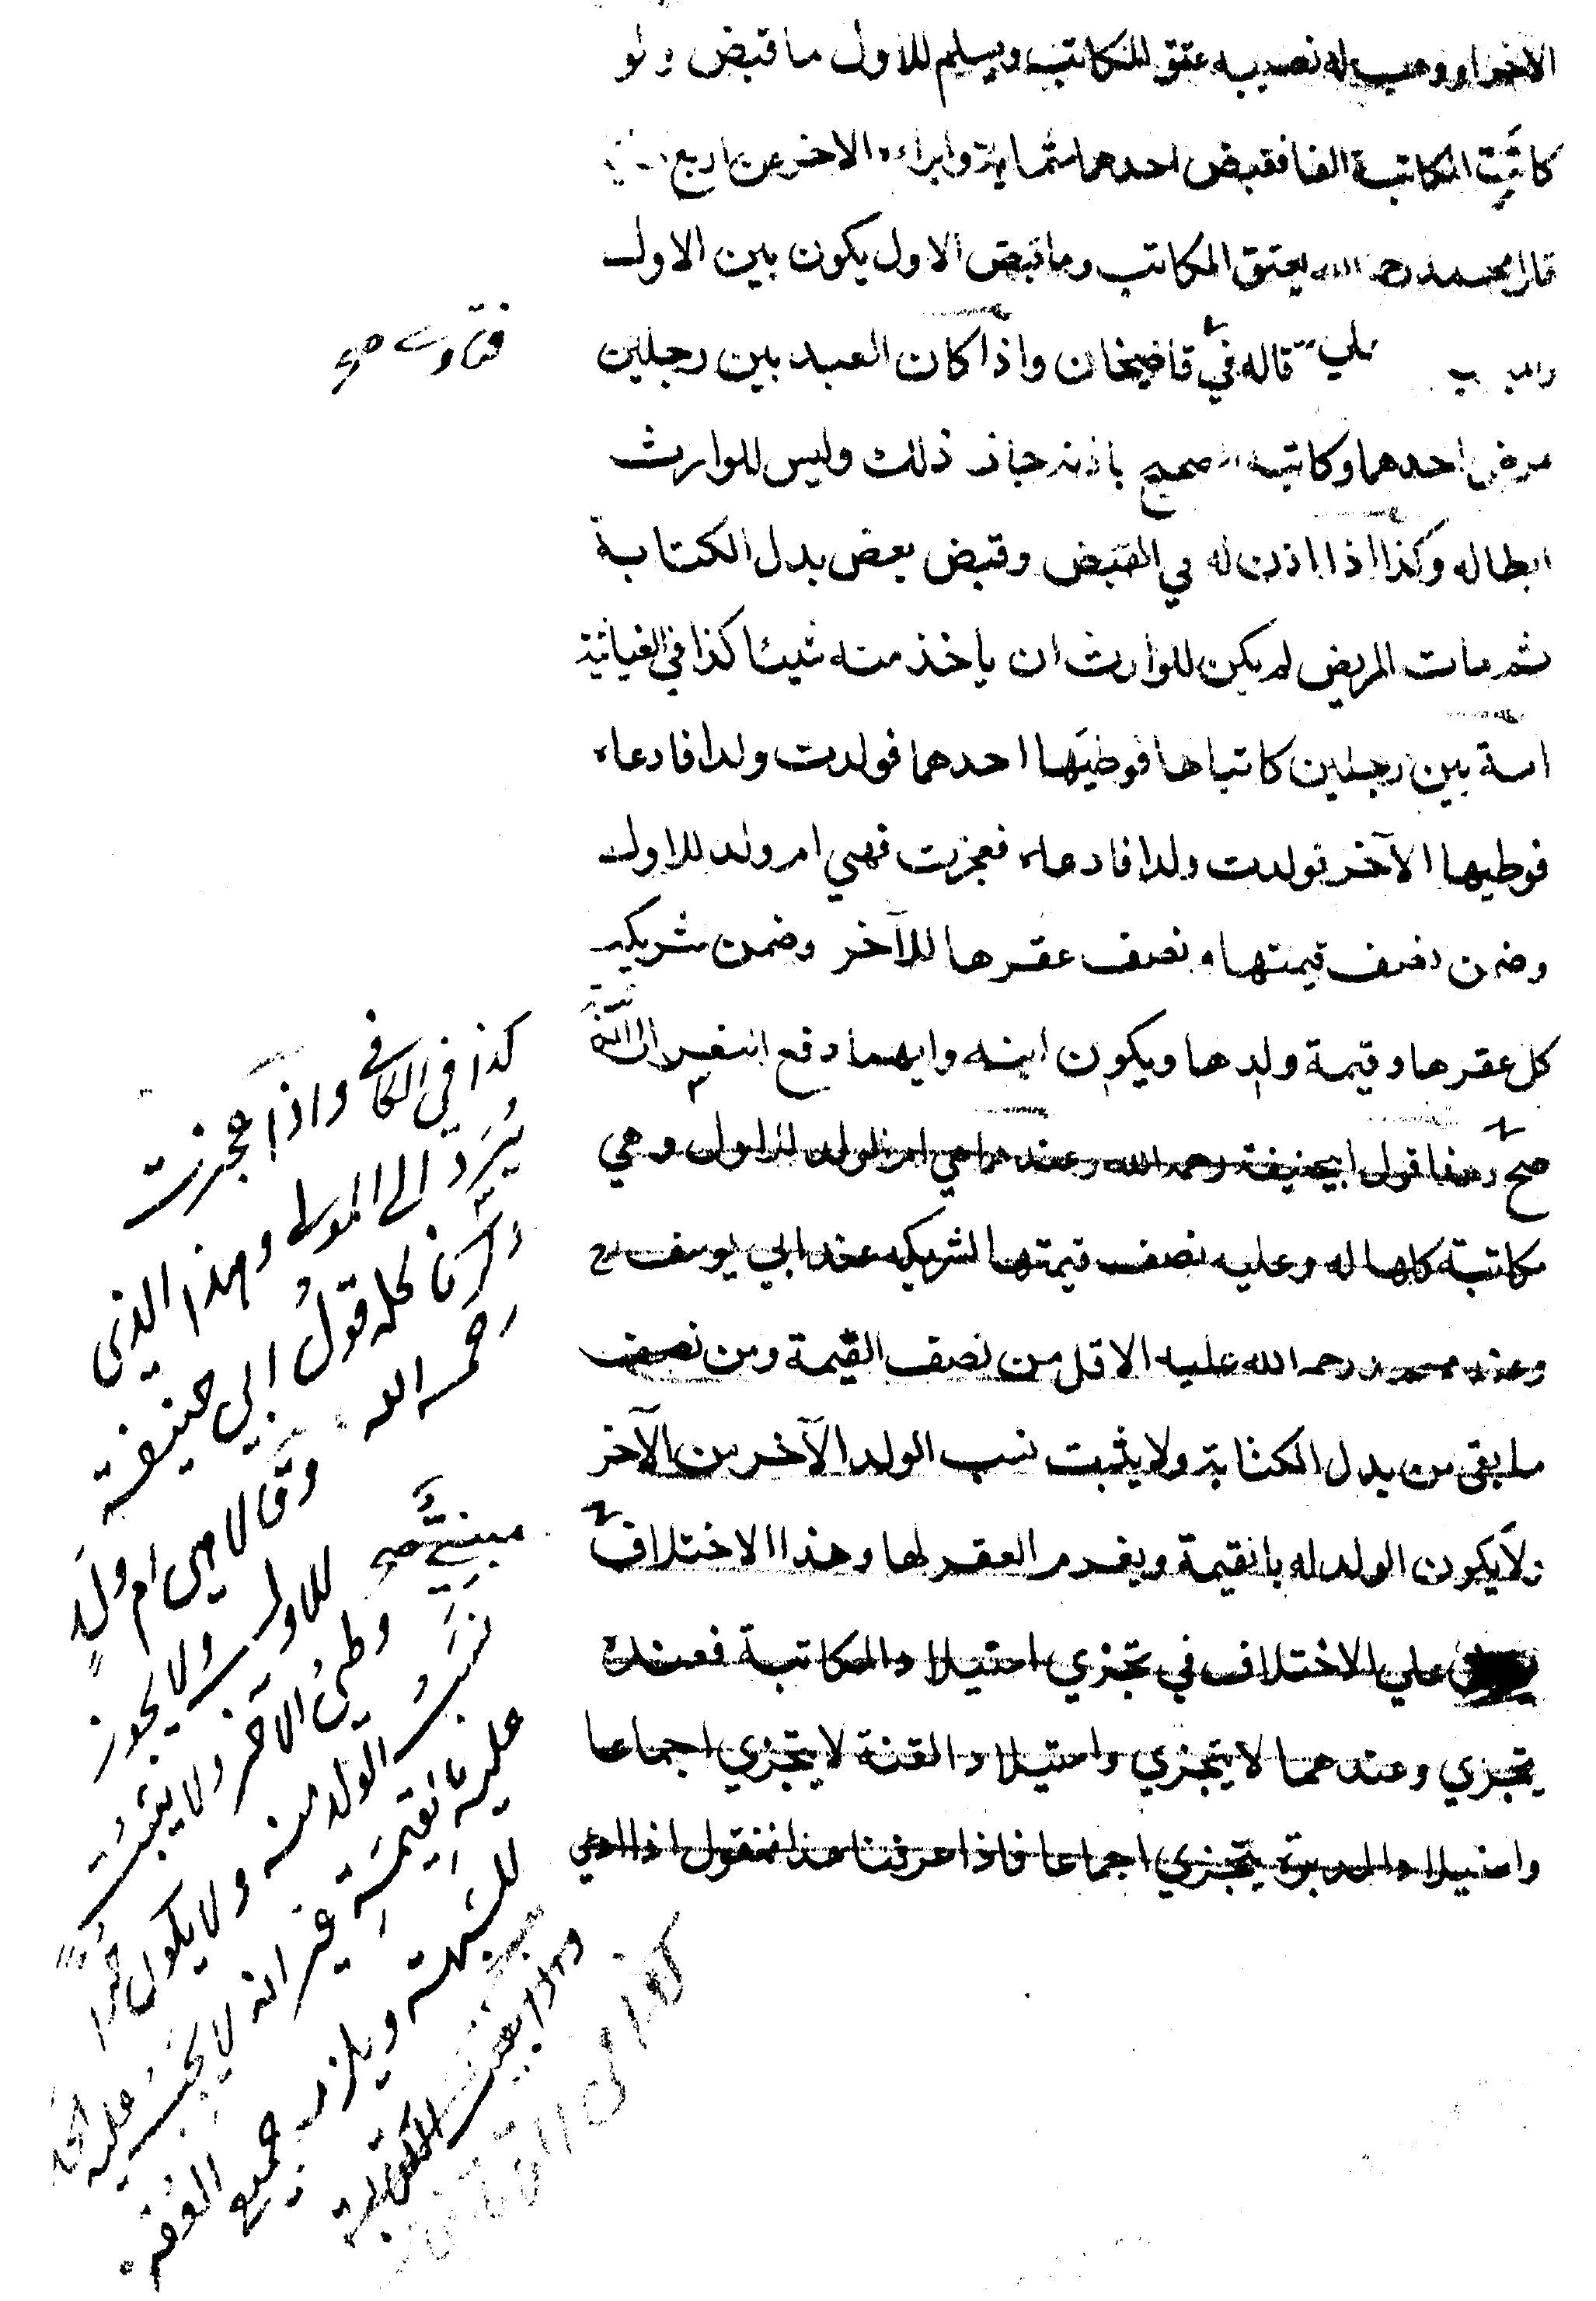 الاخر او وهب له نصيبه عتق المكاتب ويسلم للاول ما قبض ولو
كانت المكاتبة الفا فقبض احدهما ستماية وابراء الاخر عن اربع
قال محمد رحمه الله يعتق المكاتب وما قبض الاول يكون بين الاول
قاله في قاضيخان واذا كان العبد بين رجلين
فتاوى صح
مرض احدهما وكاتبه الصحيح باذنه جاز ذلك وليس للوارث
ابطاله وكذا اذا اذن له في القبض وقبض بعض بدل الكتابة
ثم مات المريض لم يكن للوارث ان ياخذ منه شيئا كذا في الغياثية
امة بين رجلين كاتباها فوطيها احدهما فولدت ولدا فادعاه
فوطيها الآخر فولدت ولدا فادعاه فعجزت فهي ام ولد للاول
وضمن نصف قيمتها ونصف عقرها للآخر وضمن شريكه
كل عقرها وقيمة ولدها ويكون ابنه وايهما دفع العقر الى المكاتبة
صح وهذا قول ابيحنيفة رحمه الله وعندهما هي ام الولد للاول وهي
مكاتبة كلها له وعليه نصف قيمتها لشريكه عند ابي يوسف رح
وعند محمد رحمه الله عليه الاقل من نصف القيمة ومن نصف
ما بقي من بدل الكتابة ولا يثبت نسب الولد الآخر من الآخر
ولا يكون الولد له بالقيمة ويغرم العقر لها وهذا الاختلاف
على الاختلاف في تجزي استيلاد المكاتبة فعنده
يتجزي وعندهما لا يتجزي واستيلاد القنة لا يتجزي اجماعا
واستيلاد المدبرة يتجزي اجماعا فاذا عرفنا هذا فنقول اذا ادعي
كذا في الكافي واذا عجزت
يُرَدّ الى المولى وهذا الذي
ذكرنا كله قولُ ابي حنيفة
رحمه الله وقالا هي ام ولدٍ
للاول ولا يجوز
مبنيّ صح
وطئُ الآخر ولا يثبتُ
نسبُ الولد منه ولا يكون حُرًّا
عليه بالقيمَةِ غير انه لا يجبُ عليه الحد
للشبهة ويلزمه جميع العُقر
وهذا بقيت الكتابة
كذا في